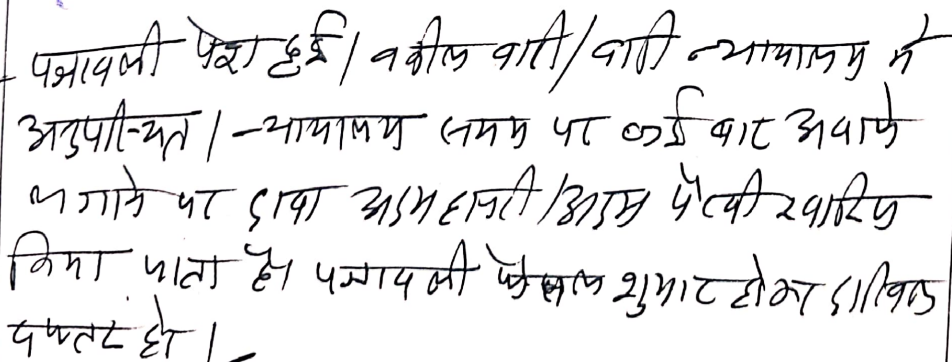 पत्रावली पेश हुई। वकील वादी/वादी न्यायालय में
अनुपस्थित। न्यायालय समय पर कई बार अवाजे
लगाने पर दावा अदम हाजरी/अदम पैरवी खारिज
किया जाता है। पत्रावली फैसल शुमार होकर दाखिल
दफ्तर हो।